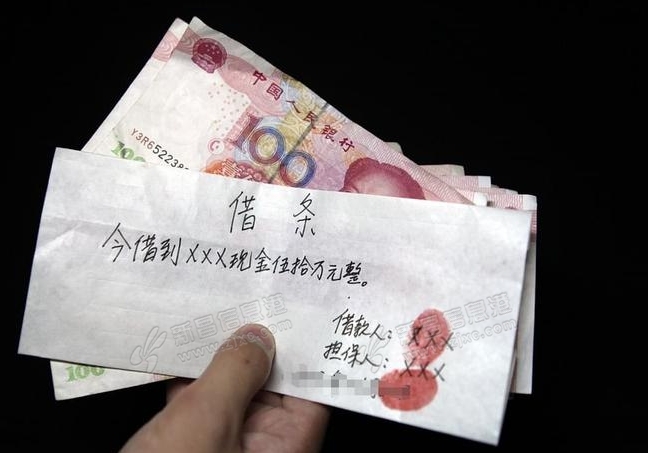 中国人民银行
Y3R652238
100
100
借条
今借到XXX现金伍拾万元整。
借款人：XXX
担保人：XXX
100
新昌信息港
新昌信息港